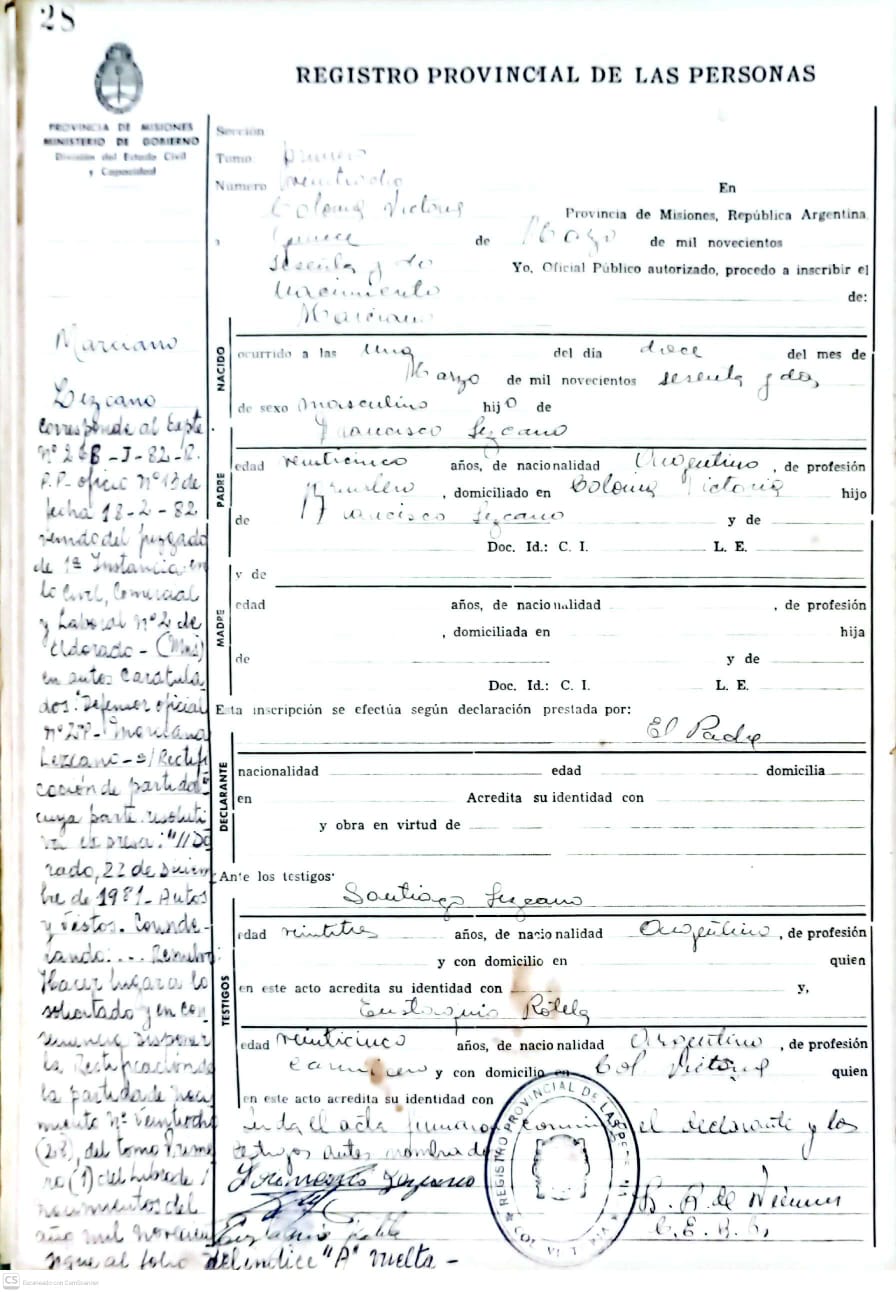 28
REGISTRO PROVINCIAL DE LAS PERSONAS
PROVINCIA DE MISIONES
MINISTERIO DE GOBIERNO
División del Estado Civil
y Capacidad
Sección
Tomo primero
Número veintiocho
En
Colonia Victoria
Provincia de Misiones, República Argentina
a quince de Marzo de mil novecientos
sesenta y dos Yo, Oficial Público autorizado, procedo a inscribir el
nacimiento de:
Marciano
NACIDO
ocurrido a las una del día doce del mes de
Marzo de mil novecientos sesenta y dos
de sexo masculino hijo de
Francisco Lezcano
PADRE
edad veinticinco años, de nacionalidad Argentino, de profesión
, domiciliado en Colonia Victoria hijo
de Francisco Lezcano y de
Doc. Id.: C. I. L. E.
y de
MADRE
edad años, de nacionalidad , de profesión
, domiciliada en hija
de y de
Doc. Id.: C. I. L. E.
Esta inscripción se efectúa según declaración prestada por:
El Padre
DECLARANTE
nacionalidad edad domicilia
en Acredita su identidad con
y obra en virtud de
Ante los testigos:
Santiago Lezcano
TESTIGOS
edad veintitres años, de nacionalidad Argentino, de profesión
y con domicilio en quien
en este acto acredita su identidad con y,
Eustaquio Rótela
edad veinticinco años, de nacionalidad Argentino, de profesión
y con domicilio en Col Victoria quien
en este acto acredita su identidad con
el acta conmigo el declarante y los
testigos antes nombrados
REGISTRO PROVINCIAL DE LAS PERS
Marciano
Lezcano
corresponde al Expte
P.P. oficio Nº 13 de
fecha 18-2-82
del juzgado
de 1ª Instancia en
lo Civil, Comercial
y Laboral Nº 2 de
Eldorado - (Mnes)
en autos caratula
dos: "Defensor oficial
Lezcano - s/ Rectifi
cación de partida"
cuya parte resoluti
va expresa: "//Do
rado, 22 de Diciem
bre de 1981 - Autos
y Vistos. Conside-
rando: ... Resuelvo:
Hacer lugar a lo
solicitado y en con
secuencia disponer
la Rectificación de
la partida de Naci
miento Nº Veintiocho
(28), del tomo Prime
ro (1) del Libro de
nacimientos del
año mil novecien
sigue al folio del indice "A" vuelta -
CS Escaneado con CamScanner